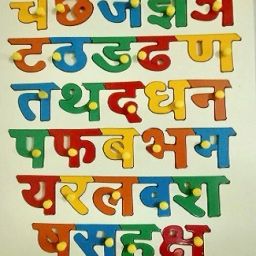 च छ ज झ ञ
ट ठ ड ढ ण
त थ द ध न
प फ ब भ म
य र ल व श
ष स ह क्ष